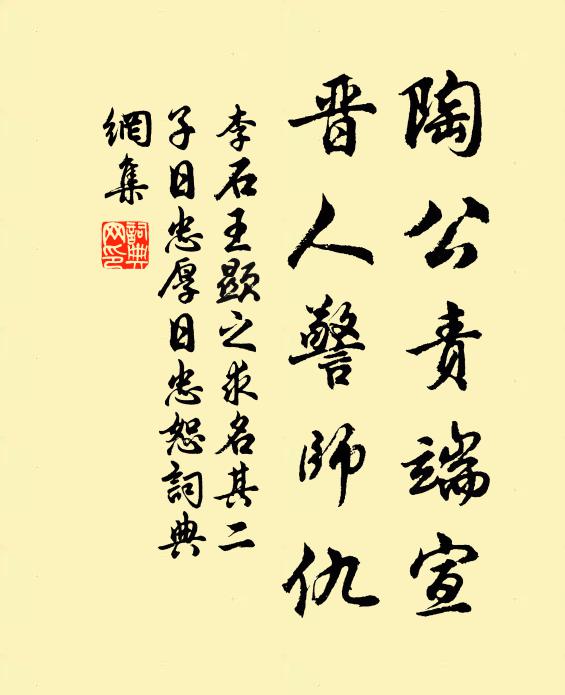 陶公責端宣
晋人警師仇
李石王顕之求名其二
子日忠厚日忠恕詞典
網集
詞典
网印